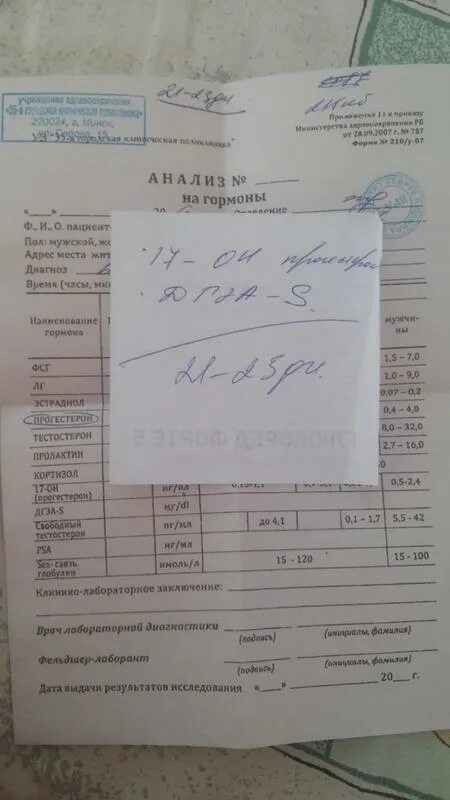 21-23дн
учреждение здравоохранения
220024, г. Минск,
Приложение 11 к приказу
Министерства здравоохранения РБ
от 28.09.2007 г. № 787
Форма № 210/у-07
клиническая поликлиника"
АНАЛИЗ № ____
на гормоны
Ф., И., О. пациент
Пол: мужской, же
Адрес места жит
Диагноз
Время (часы, мин
17-ОН
ДГЭА-S.
21-23дн.
Наименование гормона
мужчи-ны
ФСГ 1,5 – 7,0
ЛГ 1,0 – 9,0
ЭСТРАДИОЛ 0,07 – 0,2
ПРОГЕСТЕРОН 0,4 – 4,0
ТЕСТОСТЕРОН 8,0 – 32,0
ПРОЛАКТИН 2,7 – 16,0
КОРТИЗОЛ
17-ОН (прогестерон) нг/мл 0,5-2,4
ДГЭА-S мг/dl
Свободный тестостерон пг/мл до 4,1 0,1 – 1,7 5,5 - 42
PSA нг/мл
Sex-связ. глобулин нмоль/л 15 - 120 15 - 100
Клинико-лабораторное заключение:
Врач лабораторной диагностики
(подпись) (инициалы, фамилия)
Фельдшер-лаборант
(подпись) (инициалы, фамилия)
Дата выдачи результатов исследования «___» ____ 20___ г.